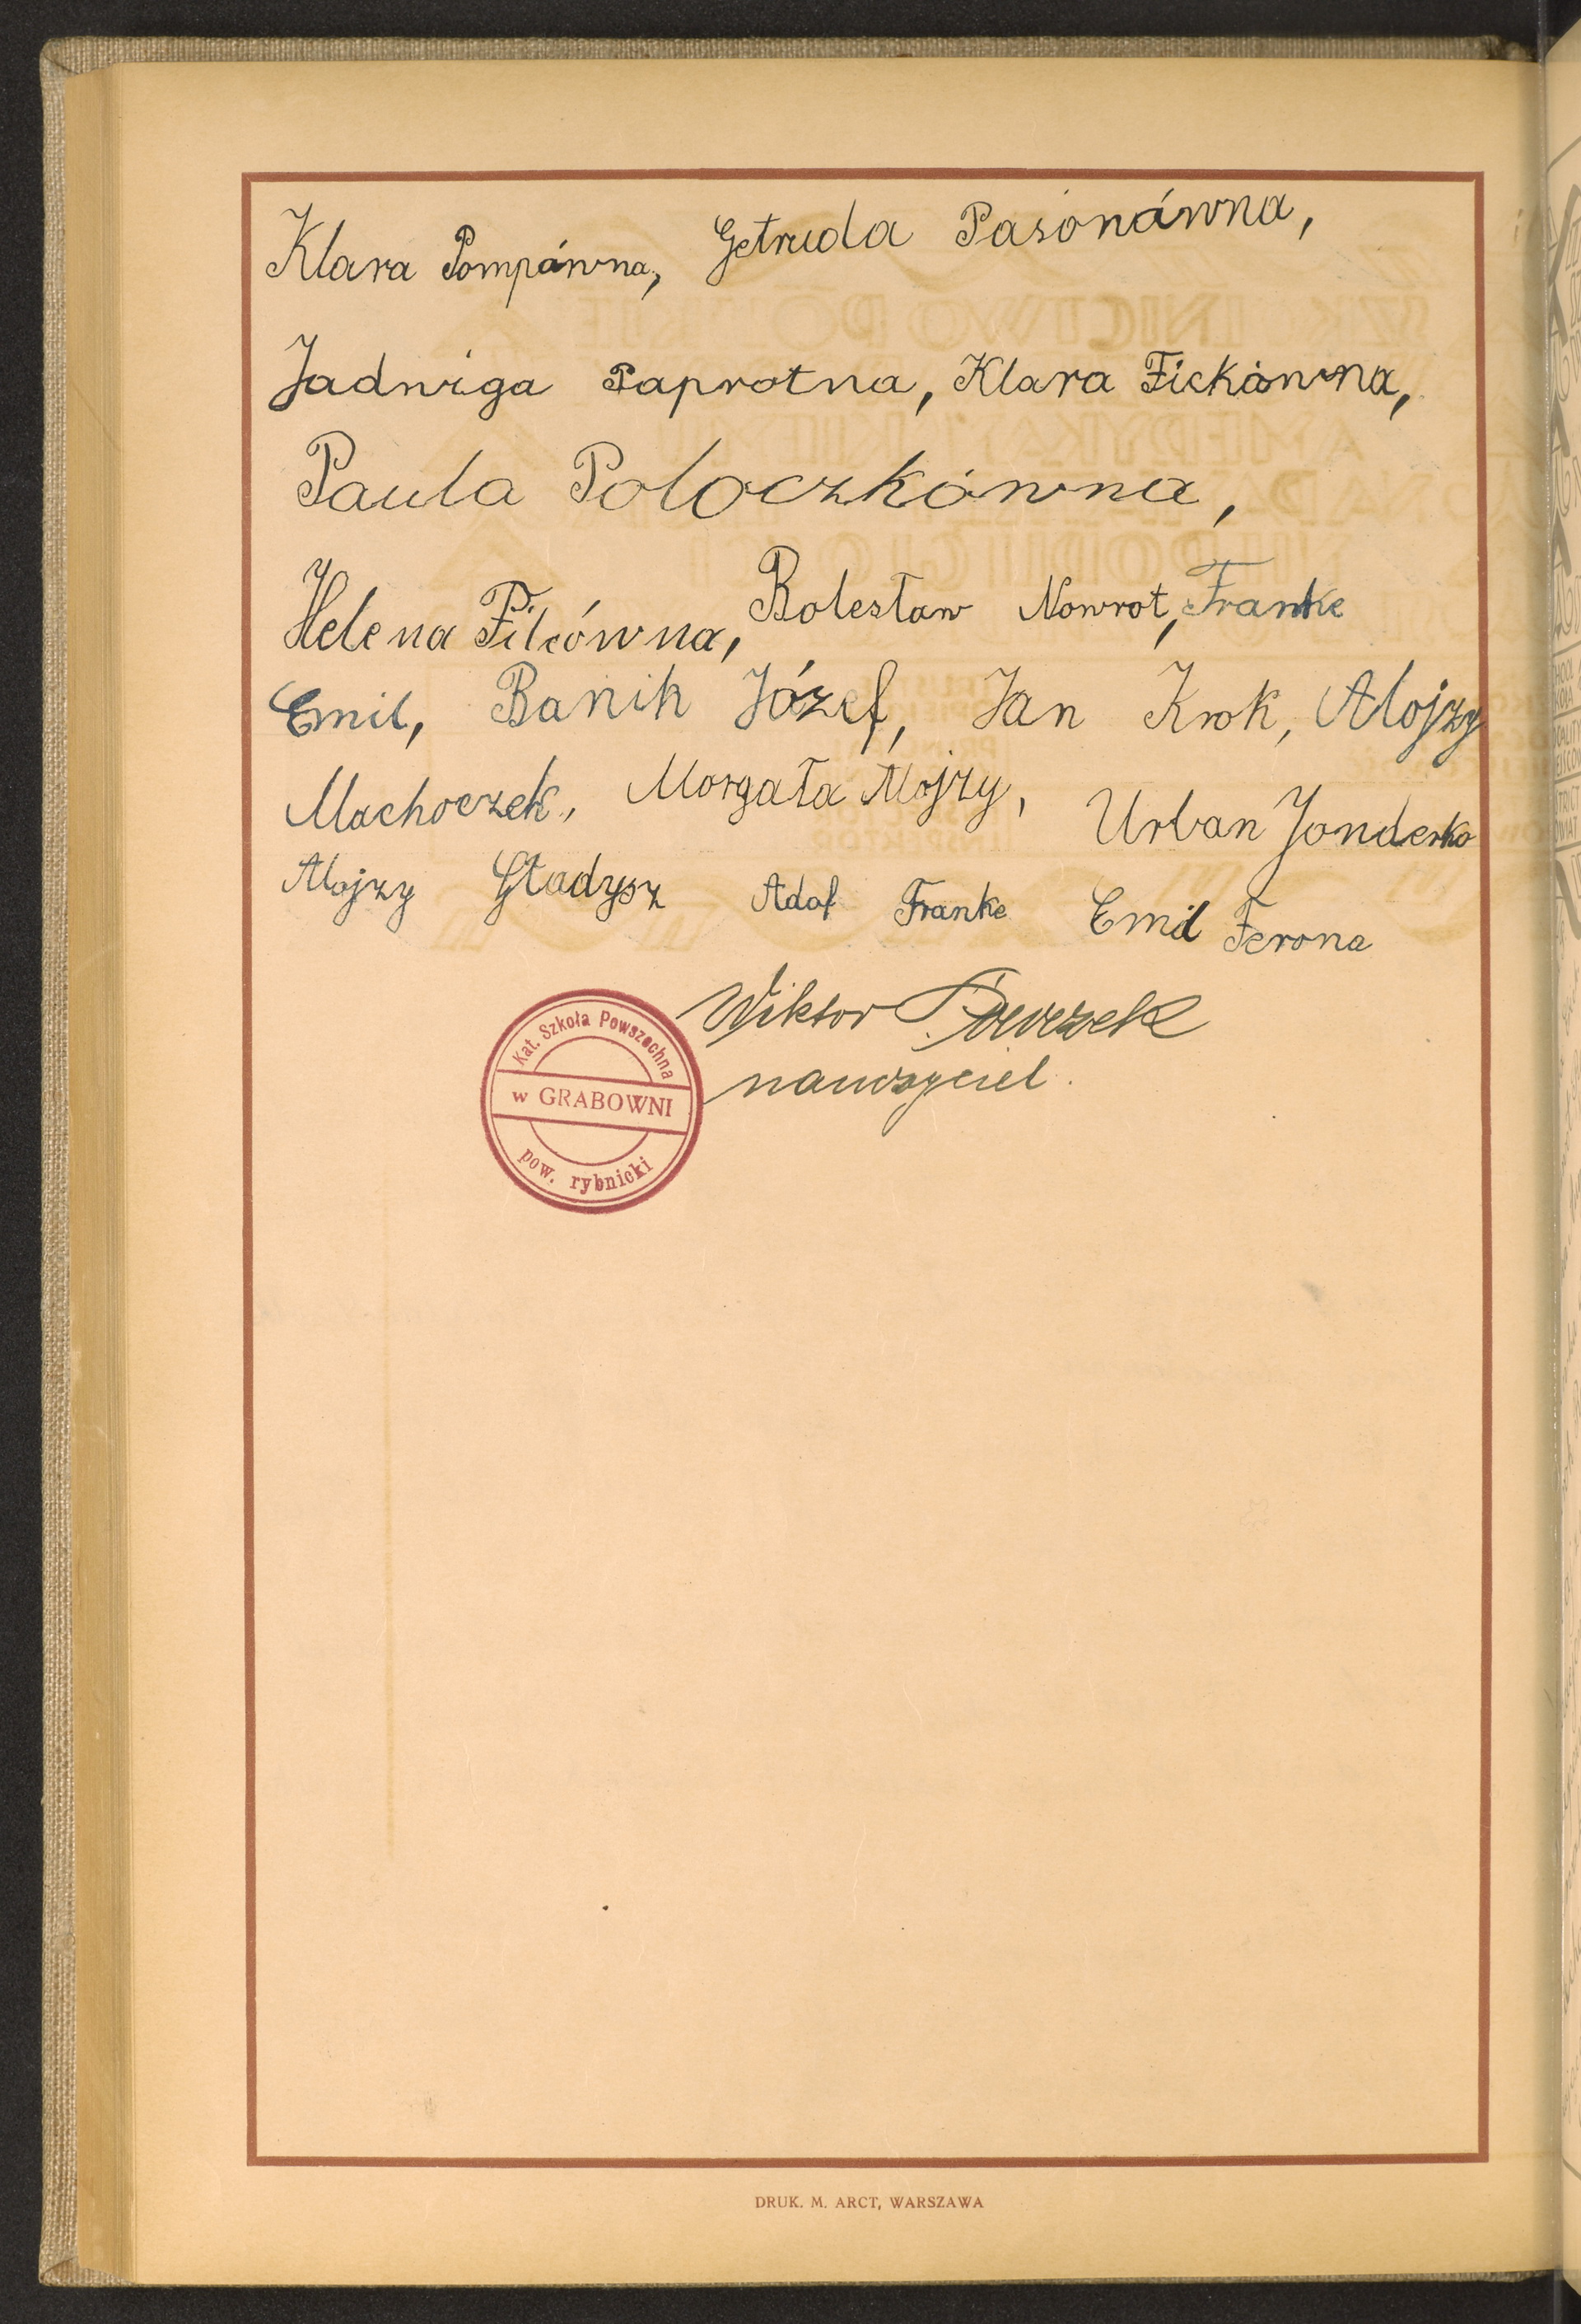 Klara Pompówna, Getruda Pasonówna,
Jadwiga Paprotna, Klara Fickówna,
Paula Poloczkówna,
Helena Pilcówna, Bolesław Nowrot, Franke
Emil, Banik Józef, Jan Krok, Alojzy
Machoczek, Morgała Alojzy, Urban Jonderko
Alojzy Gładysz Adof Franke Emil Ferona
Wiktor
nauczyciel.
Kat. Szkoła Powszechna
w GRABOWNI
pow. rybnicki
DRUK. M. ARCT, WARSZAWA